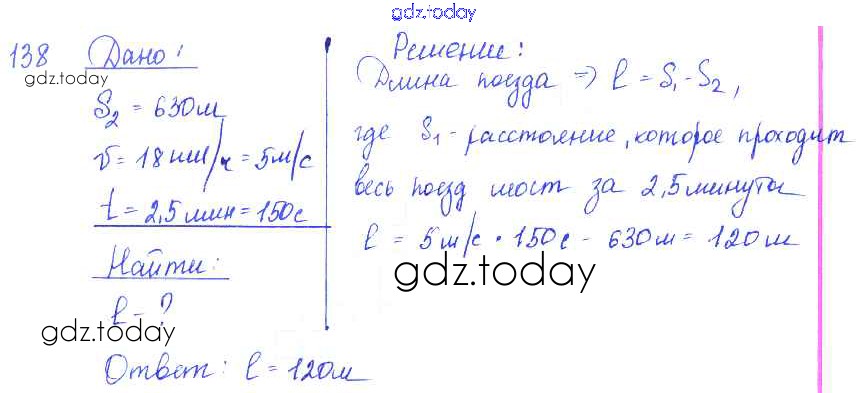 gdz.today
138 Дано:
gdz.today
S₂ = 630м
v = 18км/ч = 5м/с
t = 2,5мин = 150с
Найти:
l - ?
gdz.today
Решение:
Длина поезда => l = S₁ - S₂,
где S₁ - расстояние, которое проходит
весь поезд мост за 2,5 минуты
l = 5м/с · 150с - 630м = 120м
gdz.today
Ответ: l = 120м